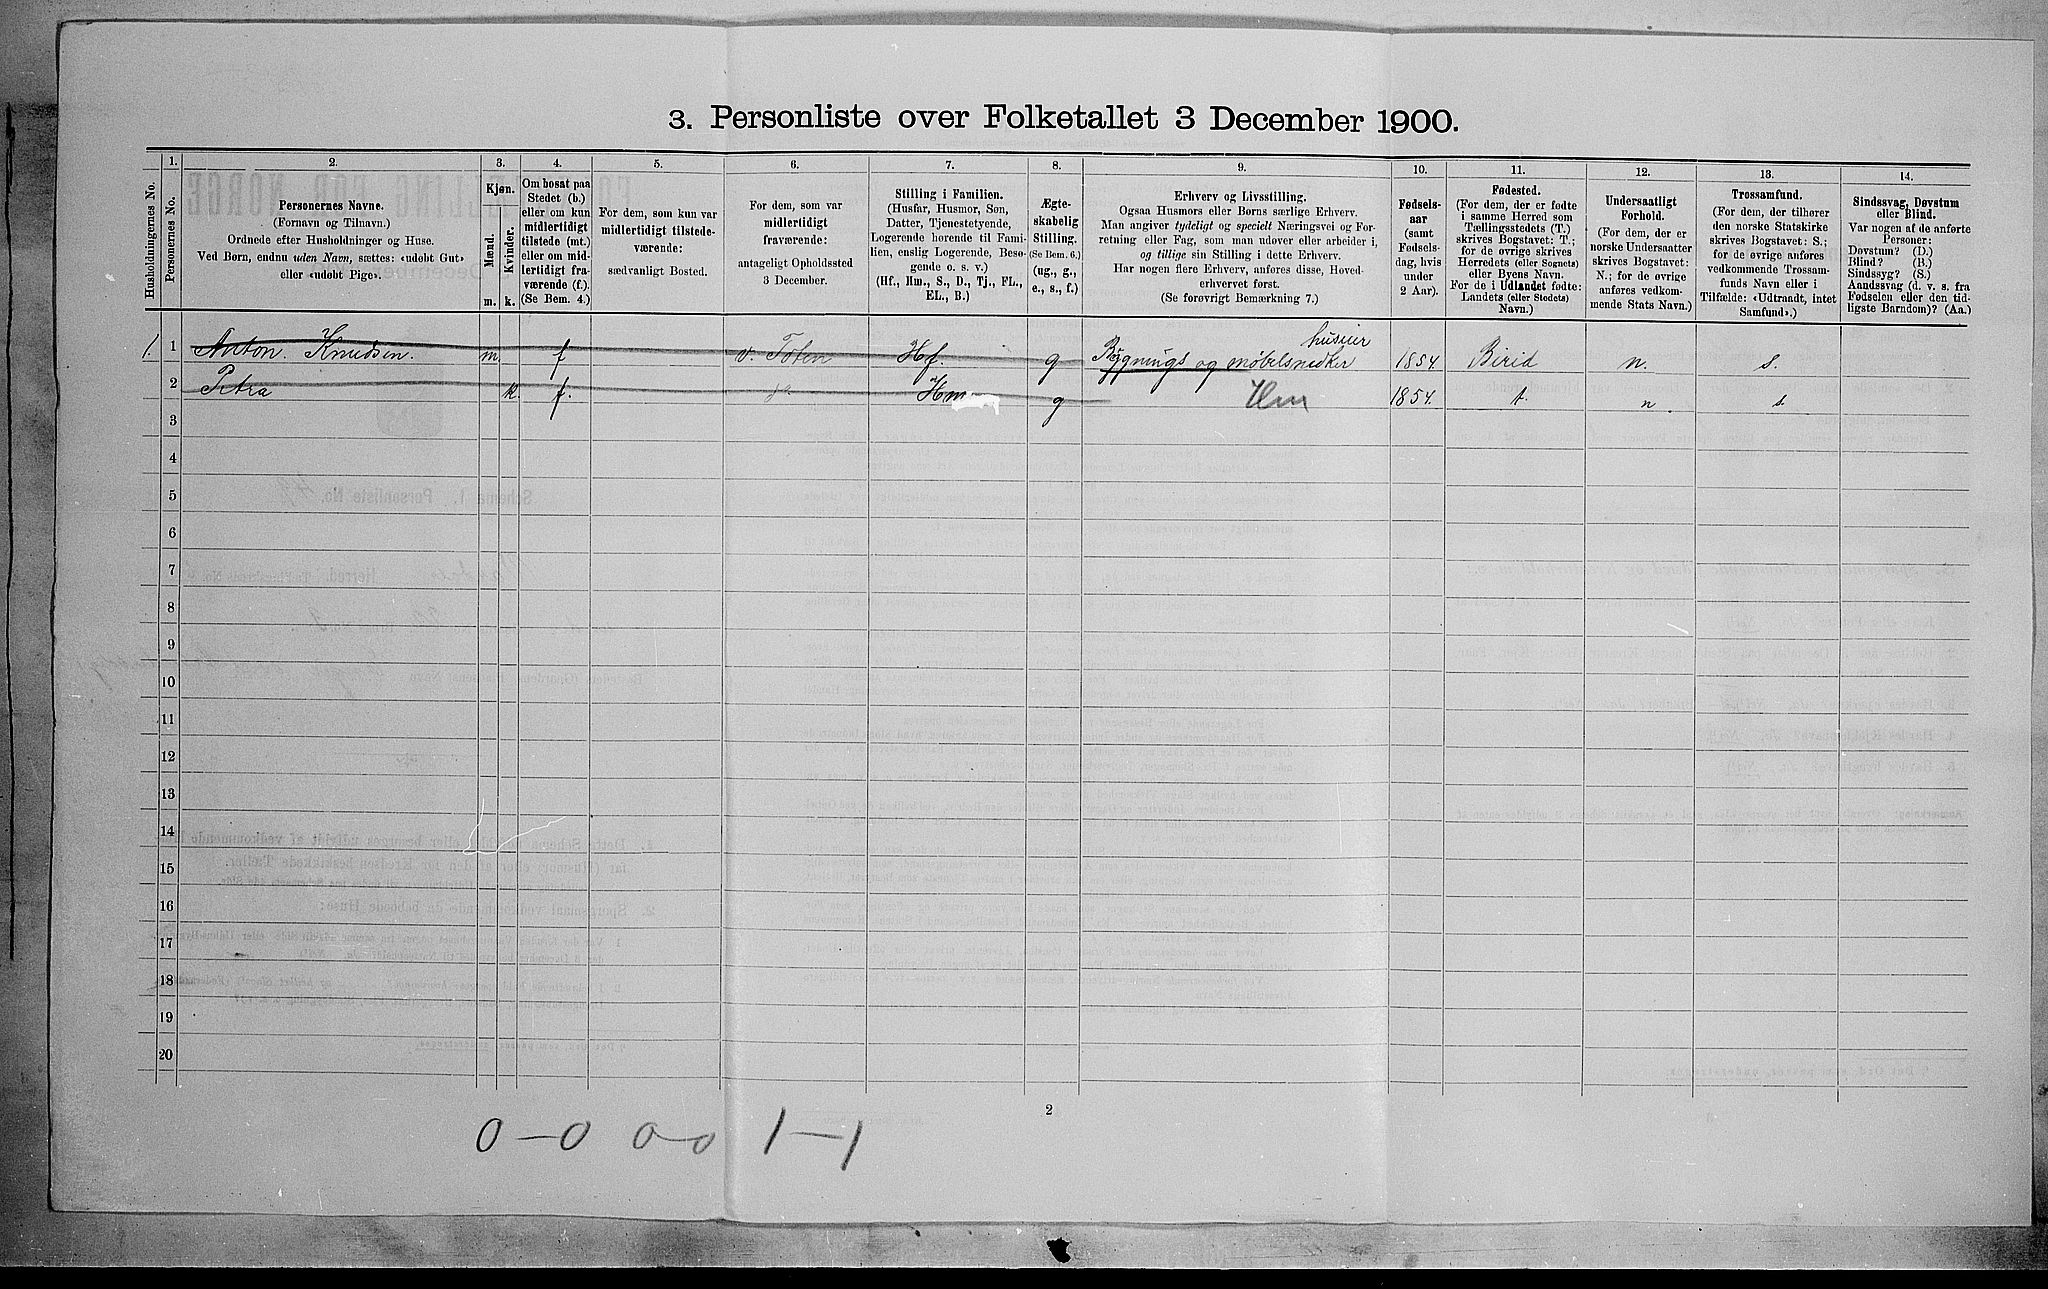 3. Personliste over Folketallet 3 December 1900.
Husholdningernes No.
1.
Personernes No.
2.
Personernes Navne.
(Fornavn og Tilnavn.)
Ordnede efter Husholdninger og Huse.
Ved Børn, endnu uden Navn, sættes: «udøbt Gut»
eller «udøbt Pige».
3.
Kjøn.
Mænd.
Kvinder.
m. k.
4.
Om bosat paa
Stedet (b.)
eller om kun
midlertidigt
tilstede (mt.)
eller om mid-
lertidigt fra-
værende (f.).
(Se Bem. 4.)
5.
For dem, som kun var
midlertidigt tilstede-
værende:
sædvanligt Bosted.
6.
For dem, som var
midlertidigt
fraværende:
antageligt Opholdssted
3 December.
7.
Stilling i Familien.
(Husfar, Husmor, Søn,
Datter, Tjenestetyende,
Logerende hørende til Fami-
lien, enslig Logerende, Besø-
gende o. s. v.)
(Hf., Hm., S., D., Tj., FL.,
EL., B.)
8.
Ægte-
skabelig
Stilling.
(Se Bem. 6.)
(ug., g.,
e., s., f.)
9.
Erhverv og Livsstilling.
Ogsaa Husmors eller Børns særlige Erhverv.
Man angiver tydeligt og specielt Næringsvei og For-
retning eller Fag, som man udøver eller arbeider i,
og tillige sin Stilling i dette Erhverv.
Har nogen flere Erhverv, anføres disse, Hoved-
erhvervet først.
(Se forøvrigt Bemærkning 7.)
10.
Fødsels-
aar
(samt
Fødsels-
dag, hvis
under
2 Aar).
11.
Fødested.
(For dem, der er fødte
i samme Herred som
Tællingsstedets (T.)
skrives Bogstavet: T.;
for de øvrige skrives
Herredets (eller Sognets)
eller Byens Navn.
For de i Udlandet fødte:
Landets (eller Stedets)
Navn.)
12.
Undersaatligt
Forhold.
(For dem, der er
norske Undersaatter
skrives Bogstavet:
N.; for de øvrige
anføres vedkom-
mende Stats Navn.)
13.
Trossamfund.
(For dem, der tilhører
den norske Statskirke
skrives Bogstavet: S.;
for de øvrige anføres
vedkommende Trossam-
funds Navn eller i
Tilfælde: «Udtraadt, intet
Samfund».)
14.
Sindssvag, Døvstum
eller Blind.
Var nogen af de anførte
Personer:
Døvstum? (D.)
Blind? (B.)
Sindssyg? (S.)
Aandssvag (d. v. s. fra
Fødselen eller den tid-
ligste Barndom)? (Aa.)
1. 1 Anton Knudsen. m. f v. Toten Hf. g Bygnings og møbelsnedker huseier 1854 Birid n. s.
2 Petra k. f. do. Hm g Hm 1854. t. n s
3
4
5
6
7
8
9
10
11
12
13
14
15
16
17
18
19
20
2
0-0 0-0 1-1